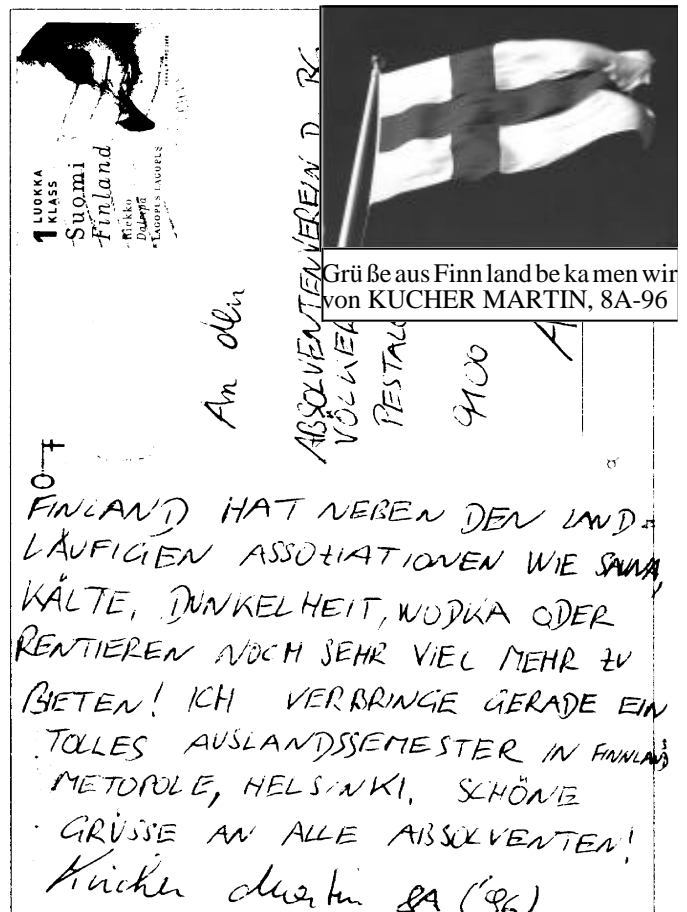 1 LUOKKA
KLASS
Suomi
Finland
LAGOPUS LAGOPUS
An den
ABSOLVENTENVEREIN D. BG
VÖLKER
PESTAL
9100
A
Grü ße aus Finn land be ka men wir
von KUCHER MARTIN, 8A-96
07
FINLAND HAT NEBEN DEN LAND-
LÄUFIGEN ASSOZIATIONEN WIE SAUNA,
KÄLTE, DUNKELHEIT, WODKA ODER
RENTIEREN NOCH SEHR VIEL MEHR ZU
BIETEN! ICH VERBRINGE GERADE EIN
TOLLES AUSLANDSSEMESTER IN FINNLANDS
METOPOLE, HELSINKI. SCHÖNE
GRÜSSE AN ALLE ABSOLVENTEN!
Kucher Martin 8A ('96)